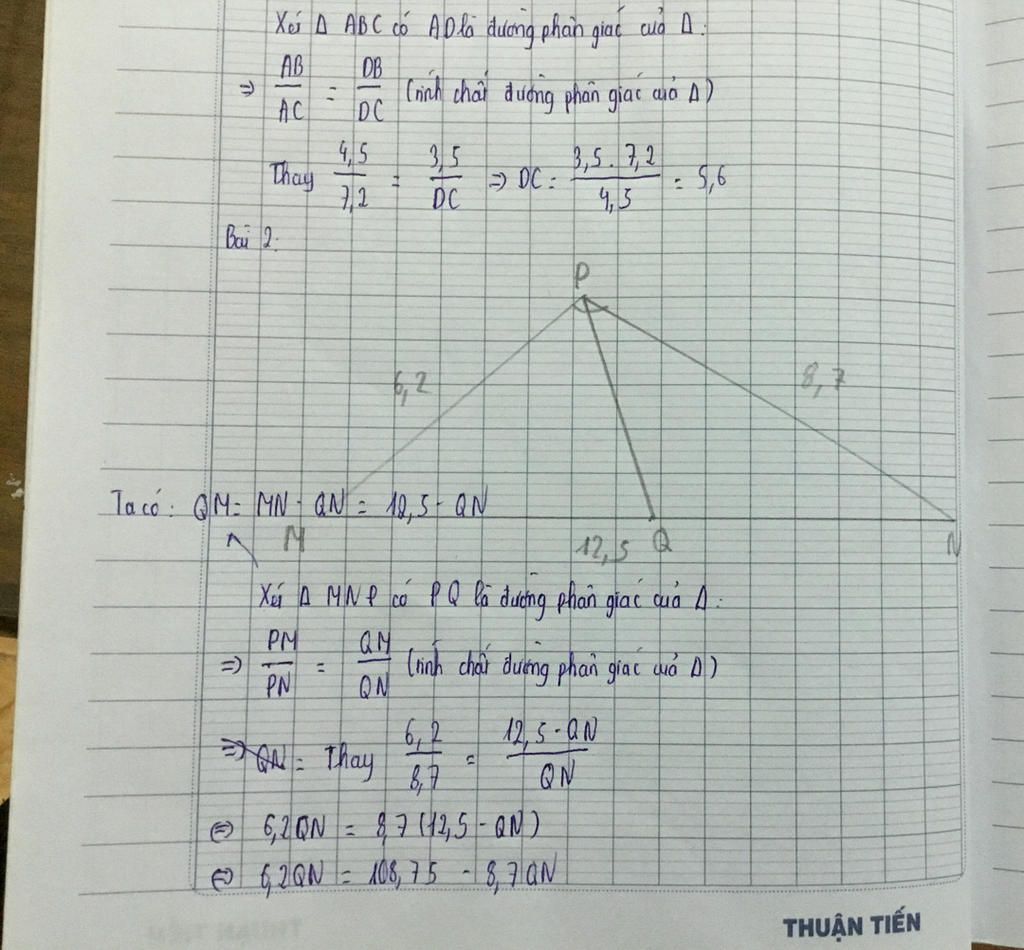 Xét Δ ABC có AD là đường phân giác của Δ:
⇒ AB/AC = DB/DC (tính chất đường phân giác của Δ)
Thay 4,5/7,2 = 3,5/DC ⇒ DC = 3,5 . 7,2/4,5 = 5,6
Bài 2:
P
6,2
8,7
Ta có: QM = MN - QN = 12,5 - QN
M
12,5
Q
N
Xét Δ MNP có PQ là đường phân giác của Δ:
⇒ PM/PN = QM/QN (tính chất đường phân giác của Δ)
⇒ QN = Thay 6,2/8,7 = 12,5 - QN/QN
⇔ 6,2QN = 8,7(12,5 - QN)
⇔ 6,2QN = 108,75 - 8,7QN
THUẬN TIẾN